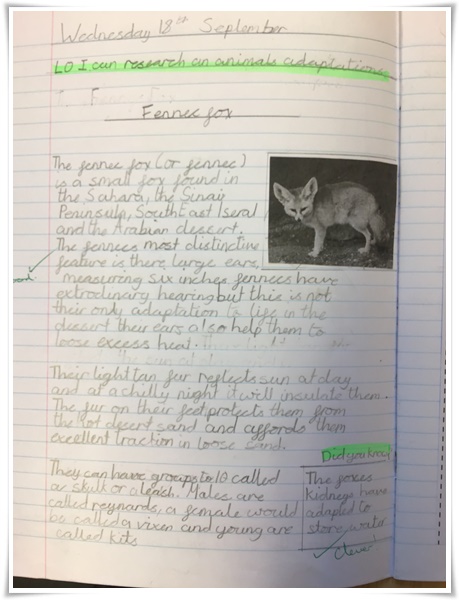 Wednesday 18th September
LO I can research an animals adaptations
Fennec fox
The fennec fox (or fennec)
is a small fox found in
the Sahara, the Sinai
Peninsula, South East Iseral
and the Arabian dessert.
The fennecs most distinctive
feature is there large ears,
measuring six inches fennecs have
extrodinary hearing but this is not
their only adaptation to life in the
dessert their ears also help them to
loose excess heat.
Their light tan fur reflects sun at day
and at a chilly night it will insulate them.
The fur on their feet protects them from
the hot desert sand and affords them
excellent traction in loose sand.
Did you know?
They can have groups to 10 called
a skulk or a leash. Males are
called reynards, a female would
be called a vixen and young are
called kits
The foxes
Kidneys have
adapted to
store water
clever!